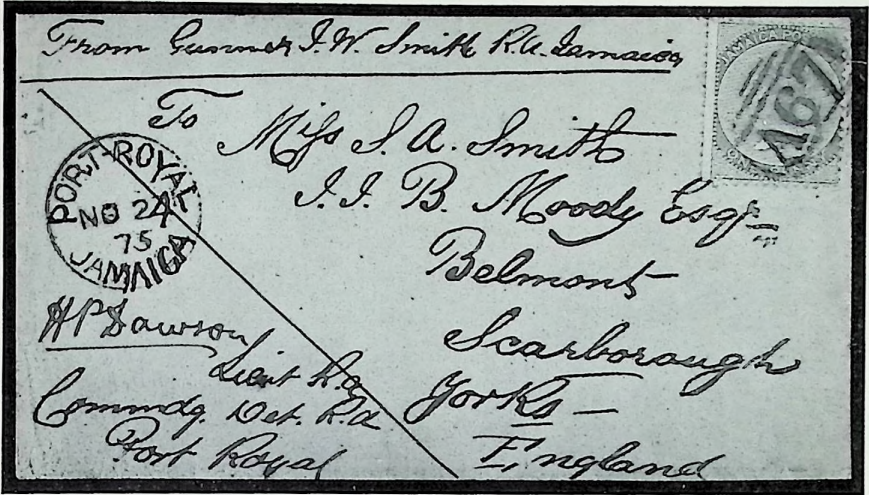 From Gunner J. W. Smith R.A. Jamaica
JAMAICA PO
A67
To
Miss S. A. Smith
J. J. B. Moody Esqr
Belmont
Scarborough
Yorks
England
PORT-ROYAL
NO 24
75
JAMAICA
H P Dawson
Lieut R.a
Commdg. Det. R.a
Port Royal